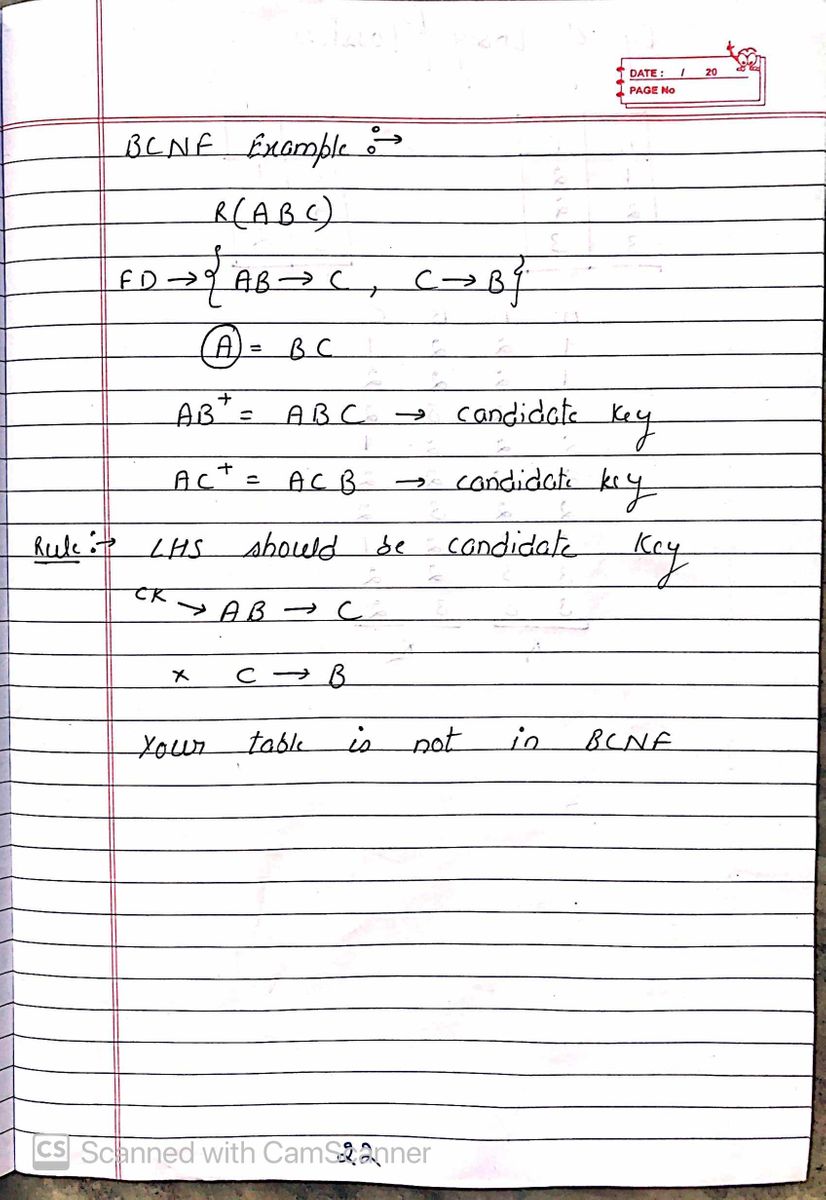 DATE: / 20
PAGE No
BCNF Example :→
R(ABC)
FD → { AB → C, C → B}
A = BC
AB⁺ = ABC → candidate key
AC⁺ = ACB → candidate key
Rule :→ LHS should be candidate key
CK → AB → C
× C → B
Your table is not in BCNF
22
CS Scanned with CamScanner